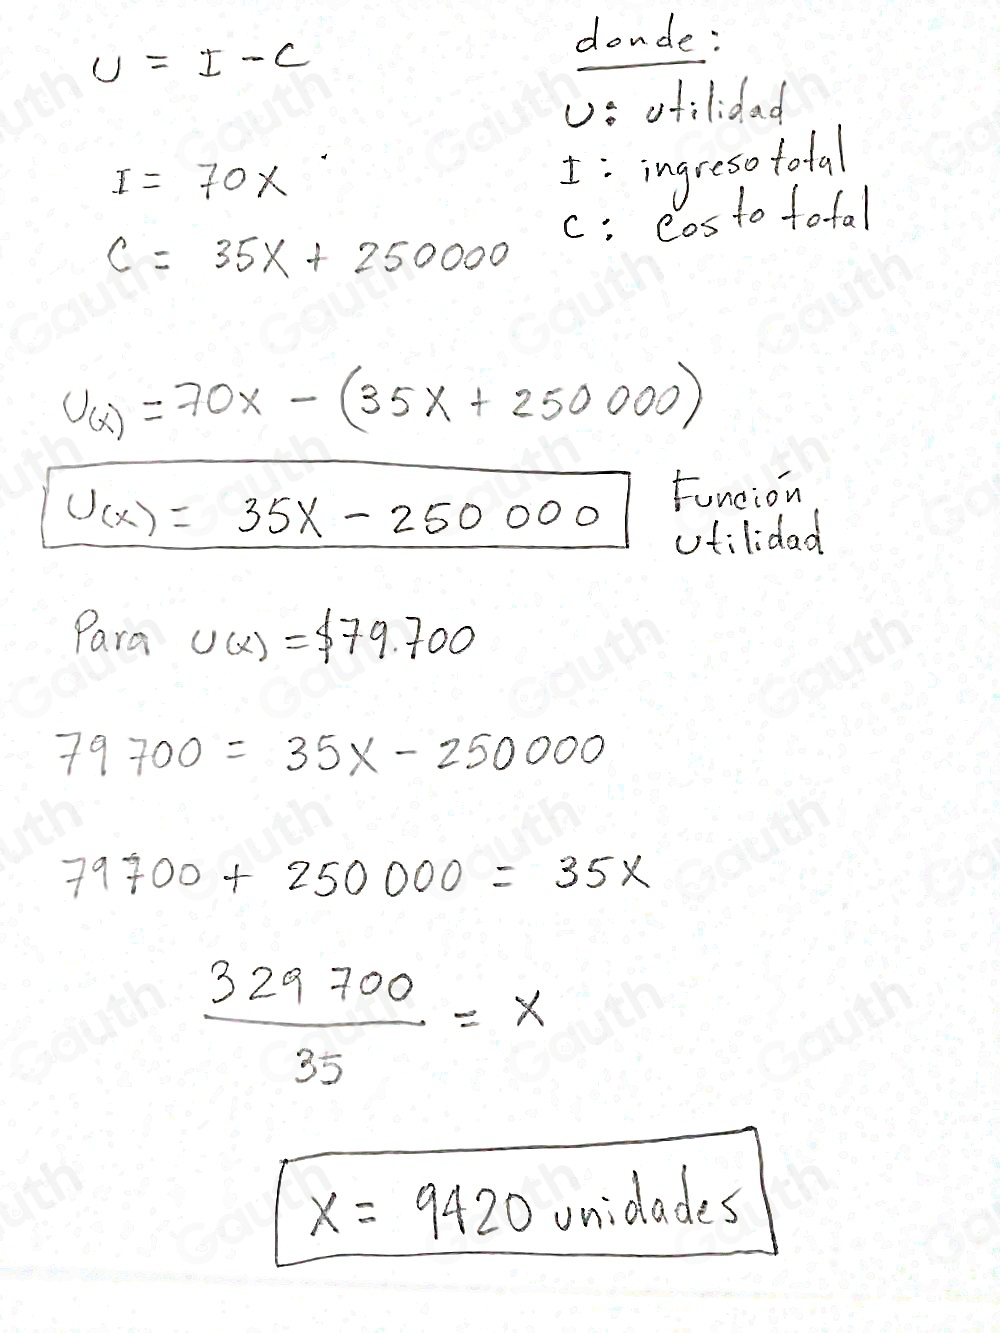 U = I - C
donde:
U: utilidad
I = 70X
I: ingreso total
C: Costo total
C = 35X + 250000
U(x) = 70X - (35X + 250 000)
U(x) = 35X - 250 000
Función
utilidad
Para U(x) = $79.700
79 700 = 35X - 250000
79700 + 250 000 = 35X
329 700
35
= X
X = 9420 unidades
Gauth